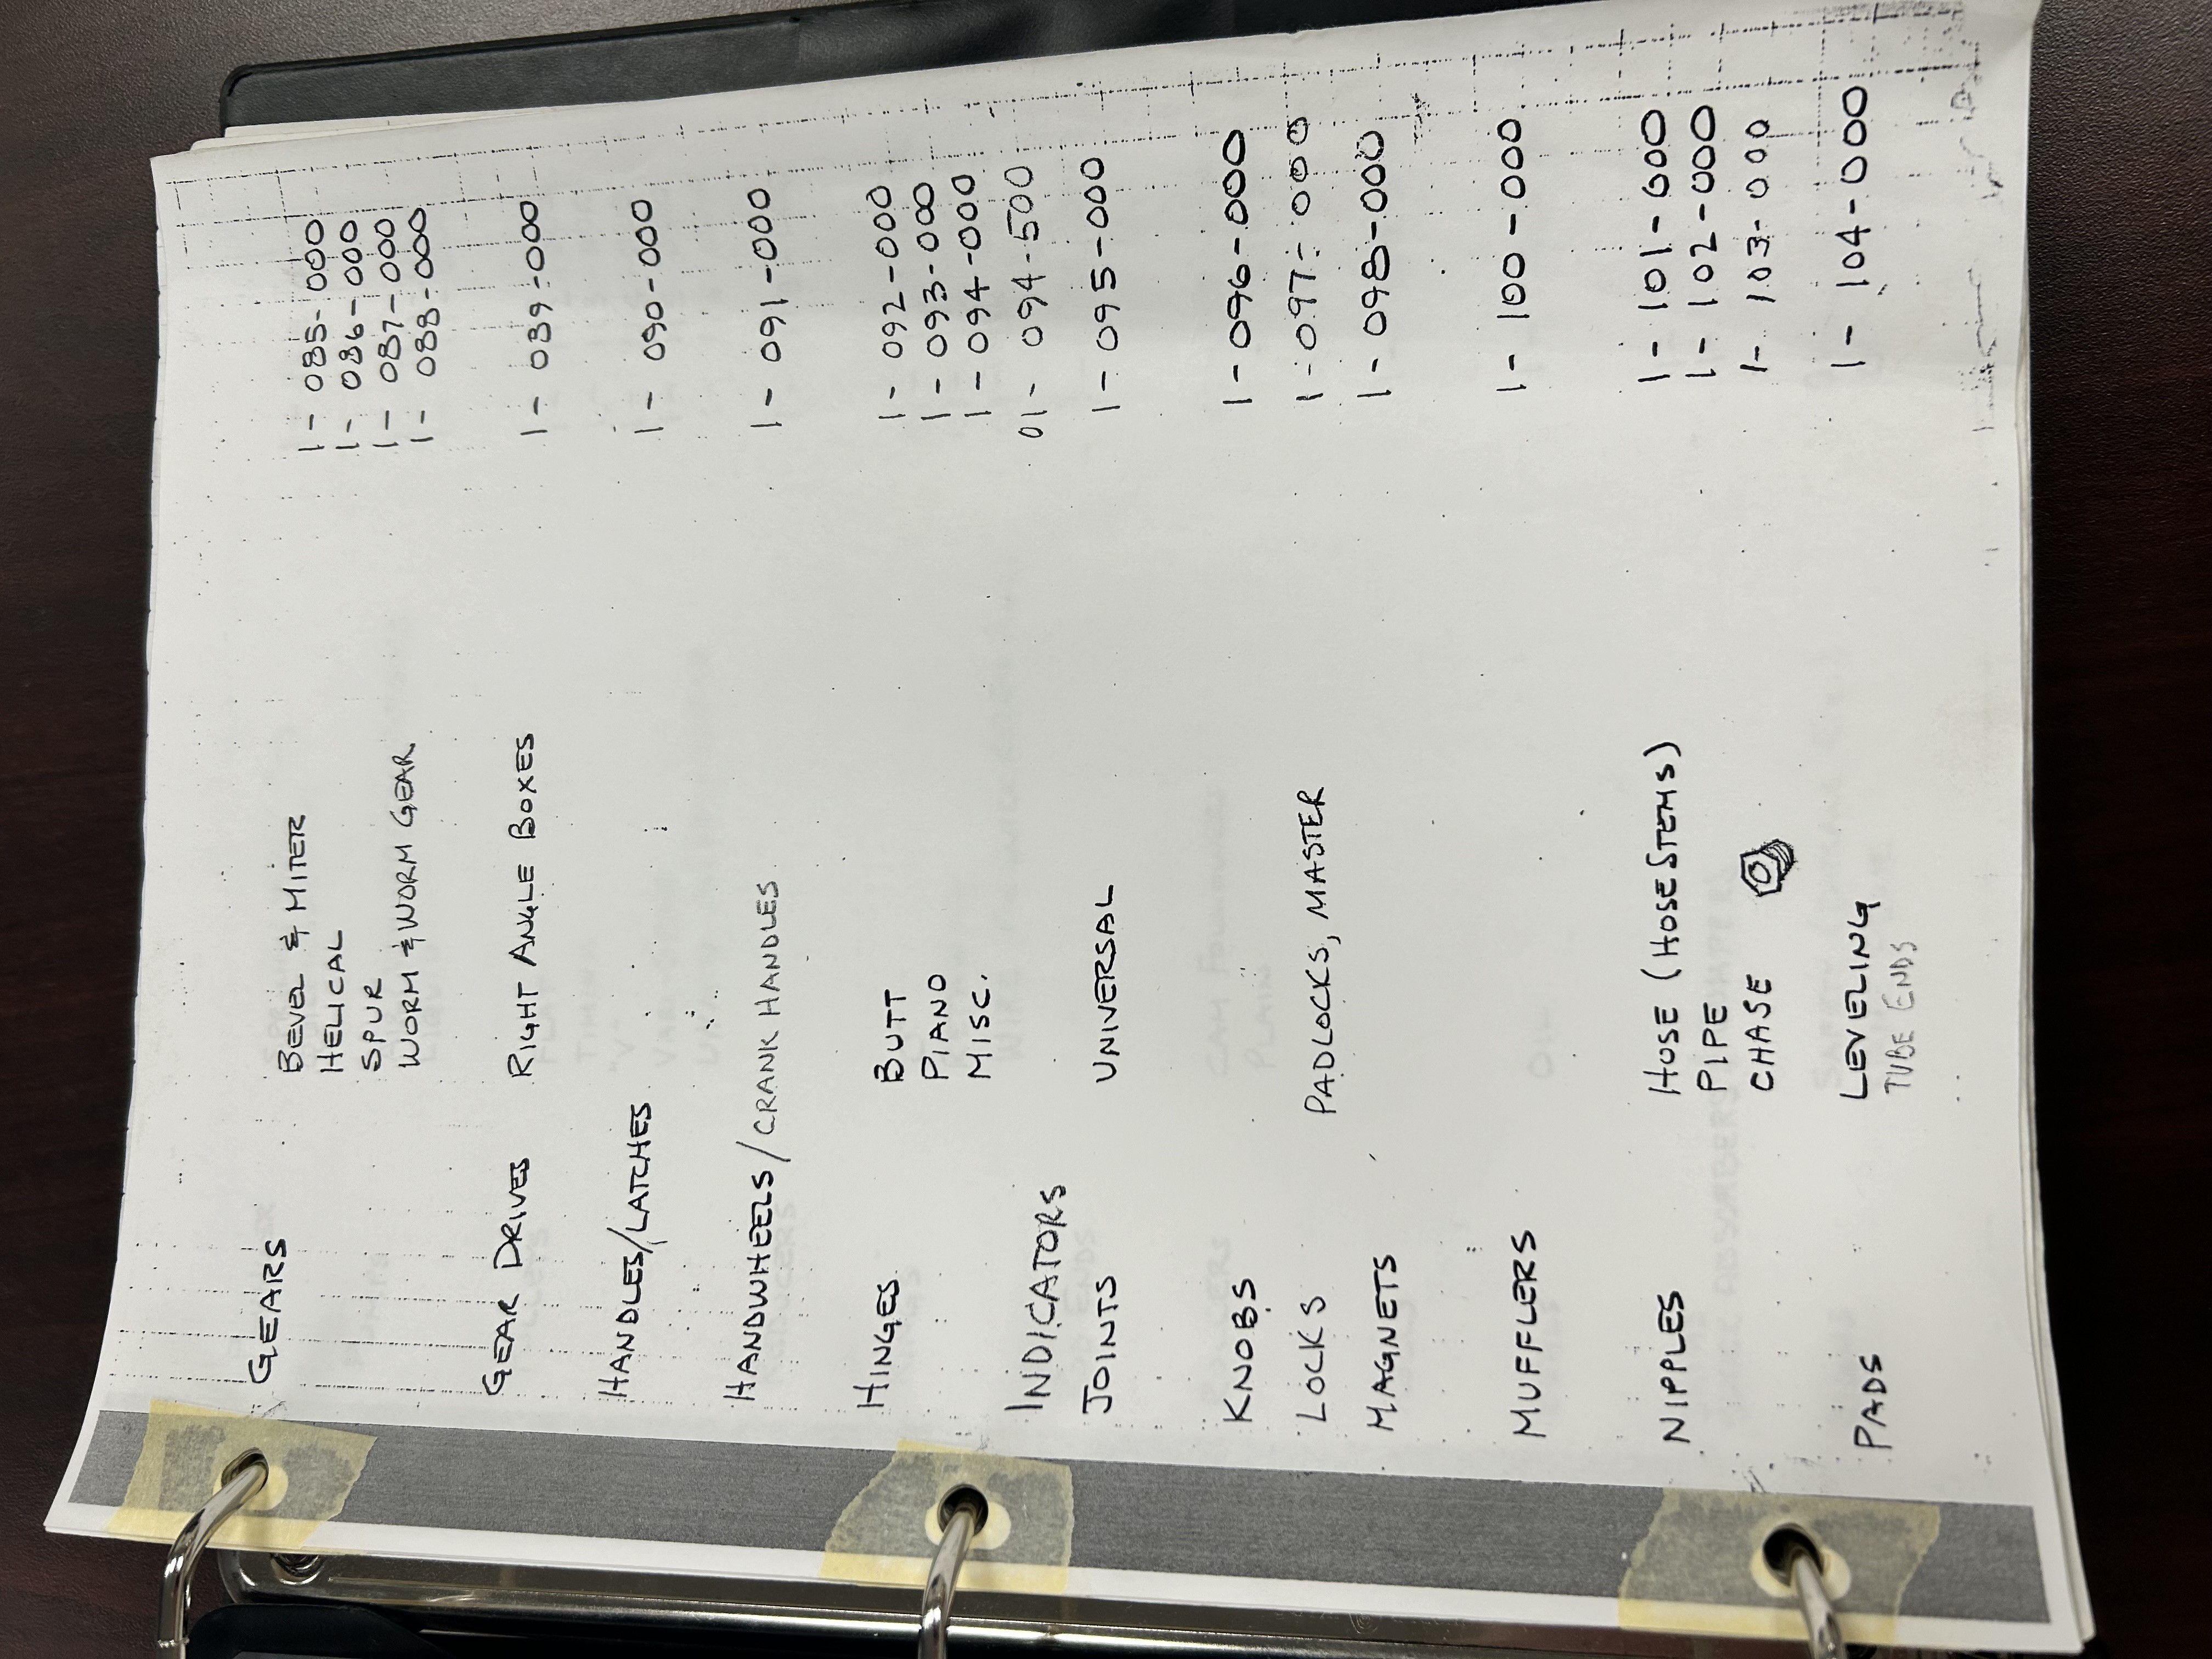 GEARS
BEVEL & MITER 1- 085-000
HELICAL 1- 086-000
SPUR 1- 087-000
WORM & WORM GEAR 1- 088-000
GEAR DRIVES RIGHT ANGLE BOXES 1- 089-000
HANDLES/LATCHES 1- 090-000
HANDWHEELS/CRANK HANDLES 1- 091-000
HINGES BUTT 1- 092-000
PIANO 1- 093-000
MISC. 1- 094-000
INDICATORS 01- 094-500
JOINTS UNIVERSAL 1- 095-000
KNOBS 1- 096-000
LOCKS PADLOCKS, MASTER 1-097-000
MAGNETS 1- 098-000
MUFFLERS 1- 100-000
NIPPLES HOSE (HOSE STEMS) 1- 101-000
PIPE 1- 102-000
CHASE 1- 103-000
PADS LEVELING 1- 104-000
TUBE ENDS